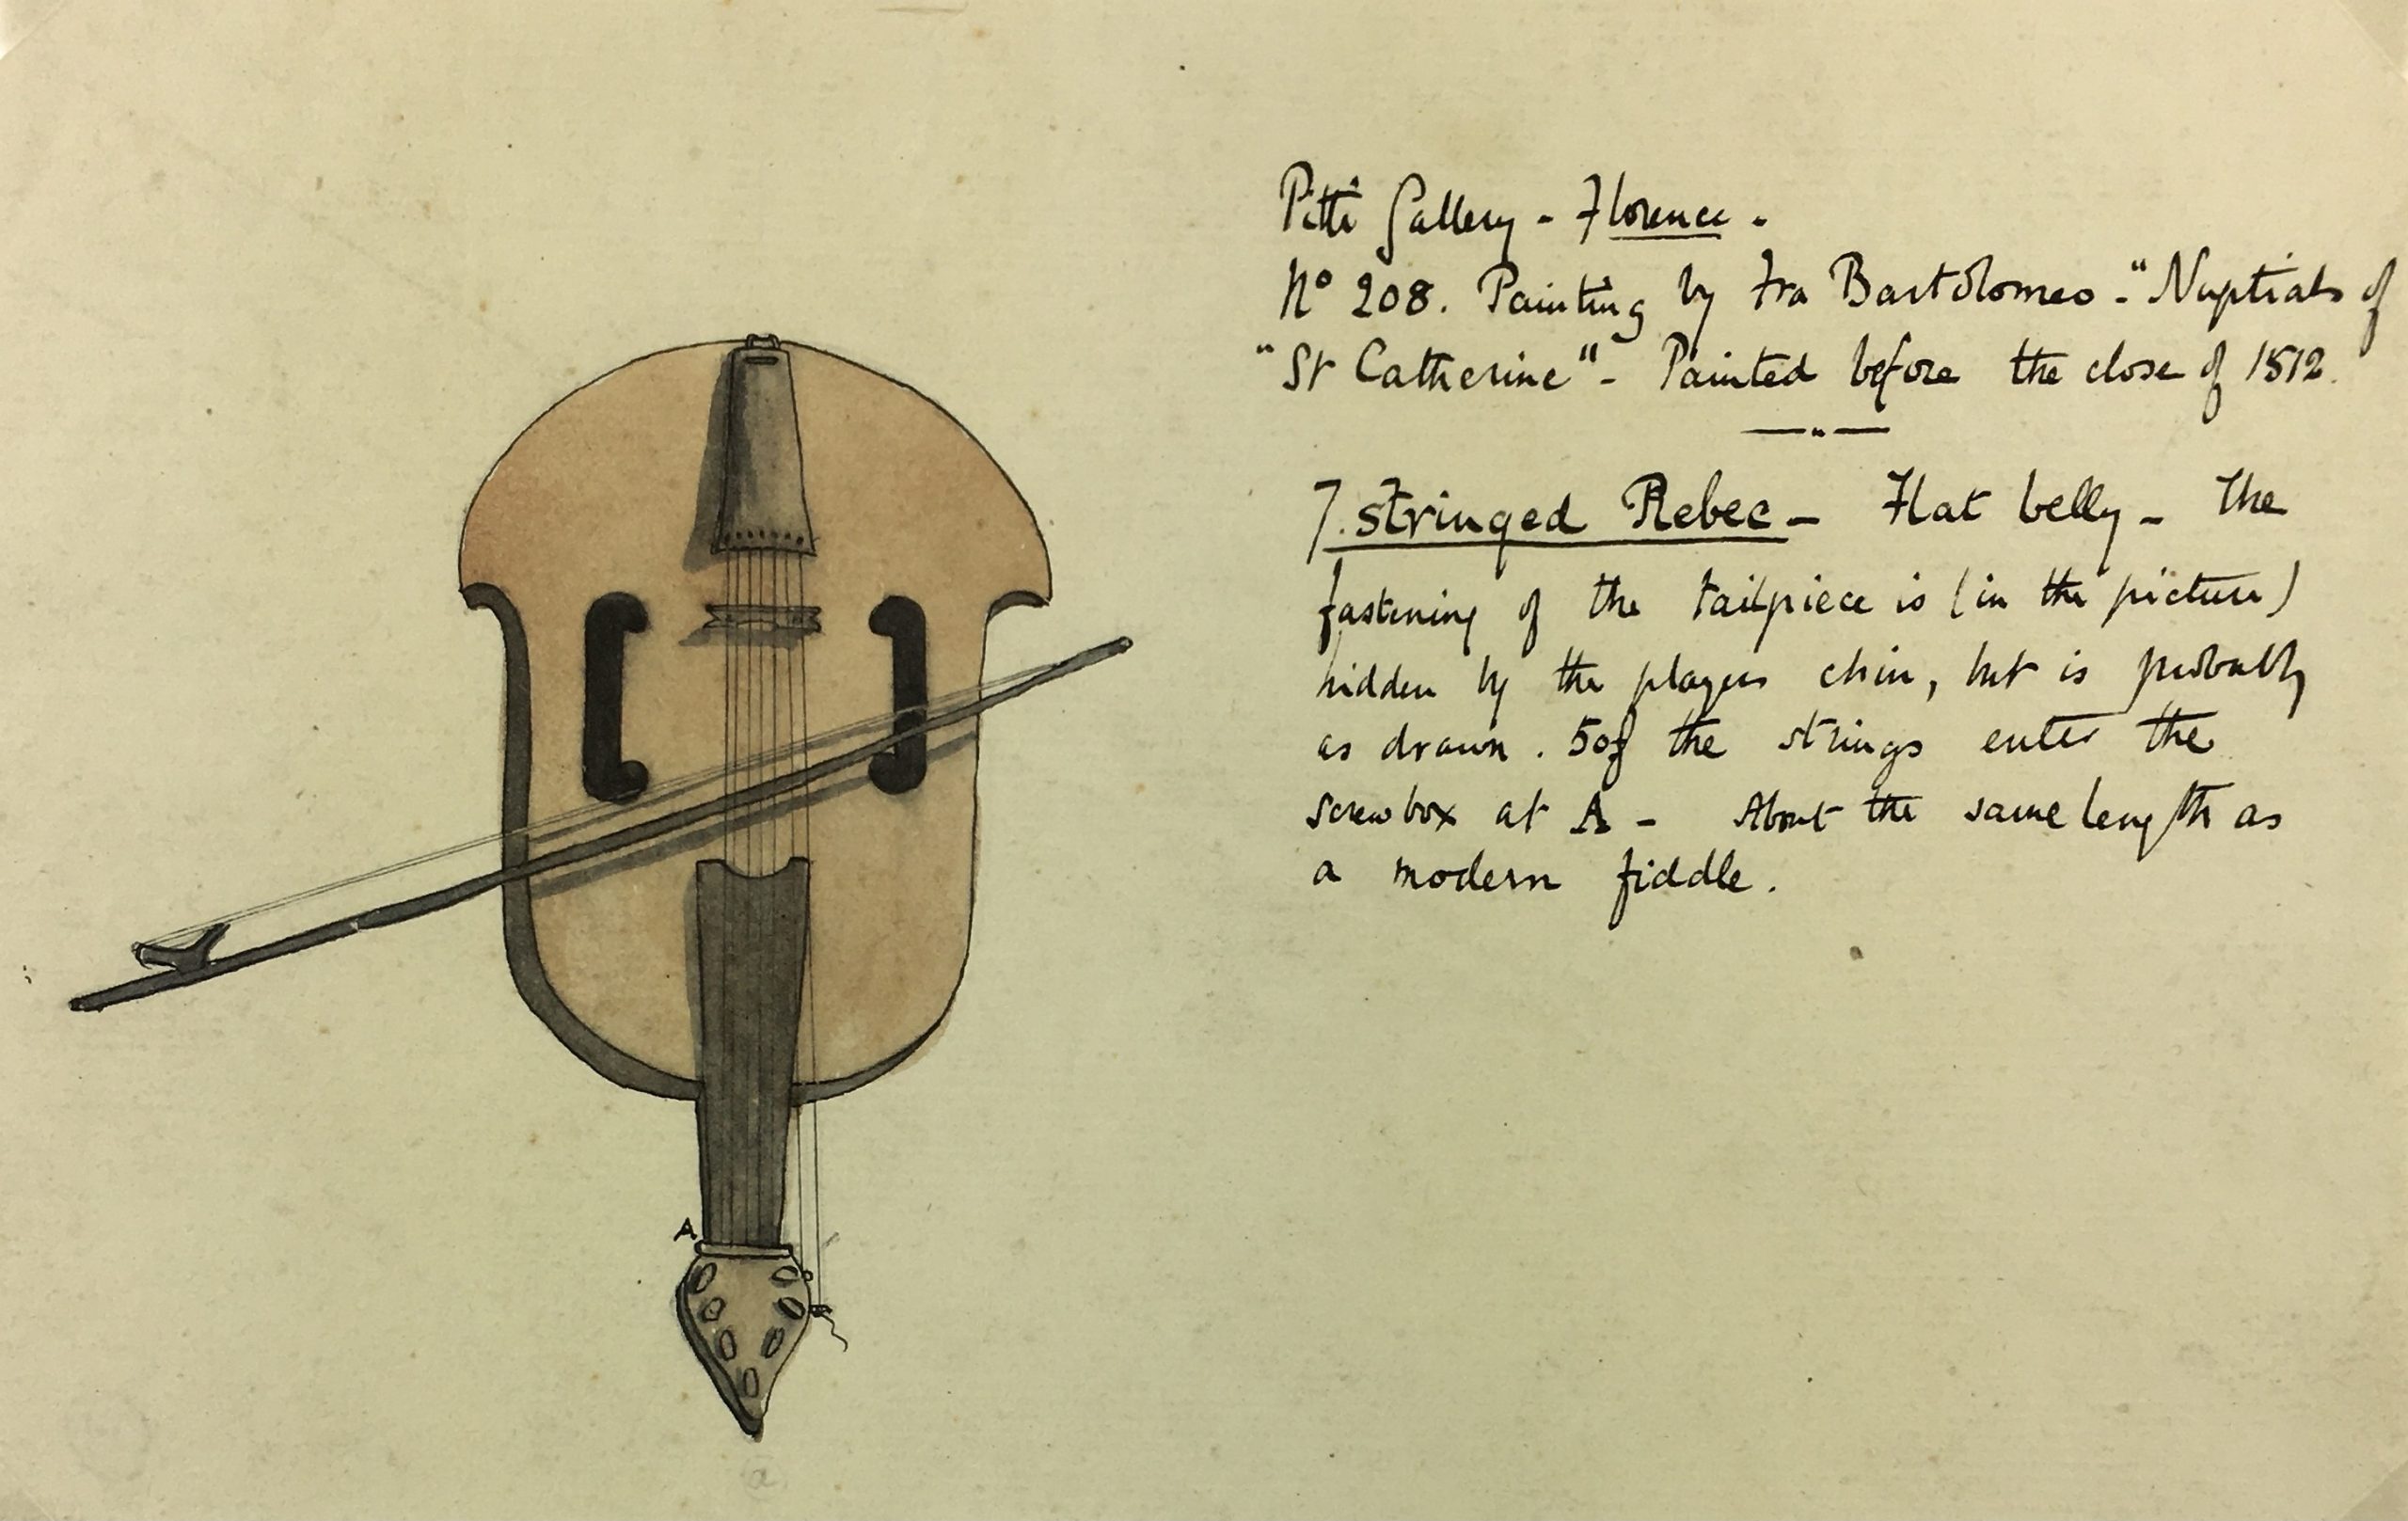 Pitti Gallery - Florence -
No 208. Painting by Fra Bartolomeo - "Nuptials of
"St Catherine" - Painted before the close of 1512.
7. stringed Rebec - Flat belly - The
fastening of the tailpiece is (in the picture)
hidden by the players chin, but is probably
as drawn. 5 of the strings enter the
screwbox at A - About the same length as
a modern fiddle.
A
a